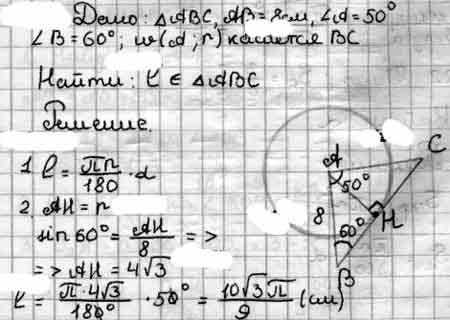 Дано: △ABC, AB = 8см, ∠A = 50°
∠B = 60°; w(A; r) касается BC
Найти: ℓ ∈ △ABC
Решение.
1. ℓ = πr/180 · α
2. AH = r
sin 60° = AH/8 =>
=> AH = 4√3
ℓ = π·4√3/180° · 50° = 10√3π/9 (см)
A
50°
C
8
H
60°
B